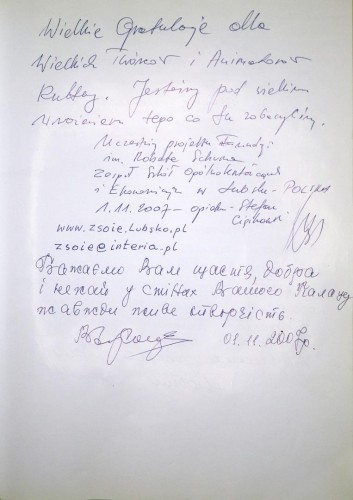 Wielkie Gratulacje dla
Wielkich Twórców i Animatorów
Kultury. Jesteśmy pod wielkim
wrażeniem tego co tu zobaczyliśmy.
Uczestnicy projektu Fundacji
im. Roberta Schumana
Zespół Szkół Ogólnokształcących
i Ekonomicznych w Lubsku - POLSKA
1.11.2007 - opiekun - Stefan
www.zsoie.lubsko.pl
zsoie@interia.pl
Бажаємо Вам щастя, добра
і нехай у стінах Вашого Палацу
завжди живе творчість.
01.11.2007р.